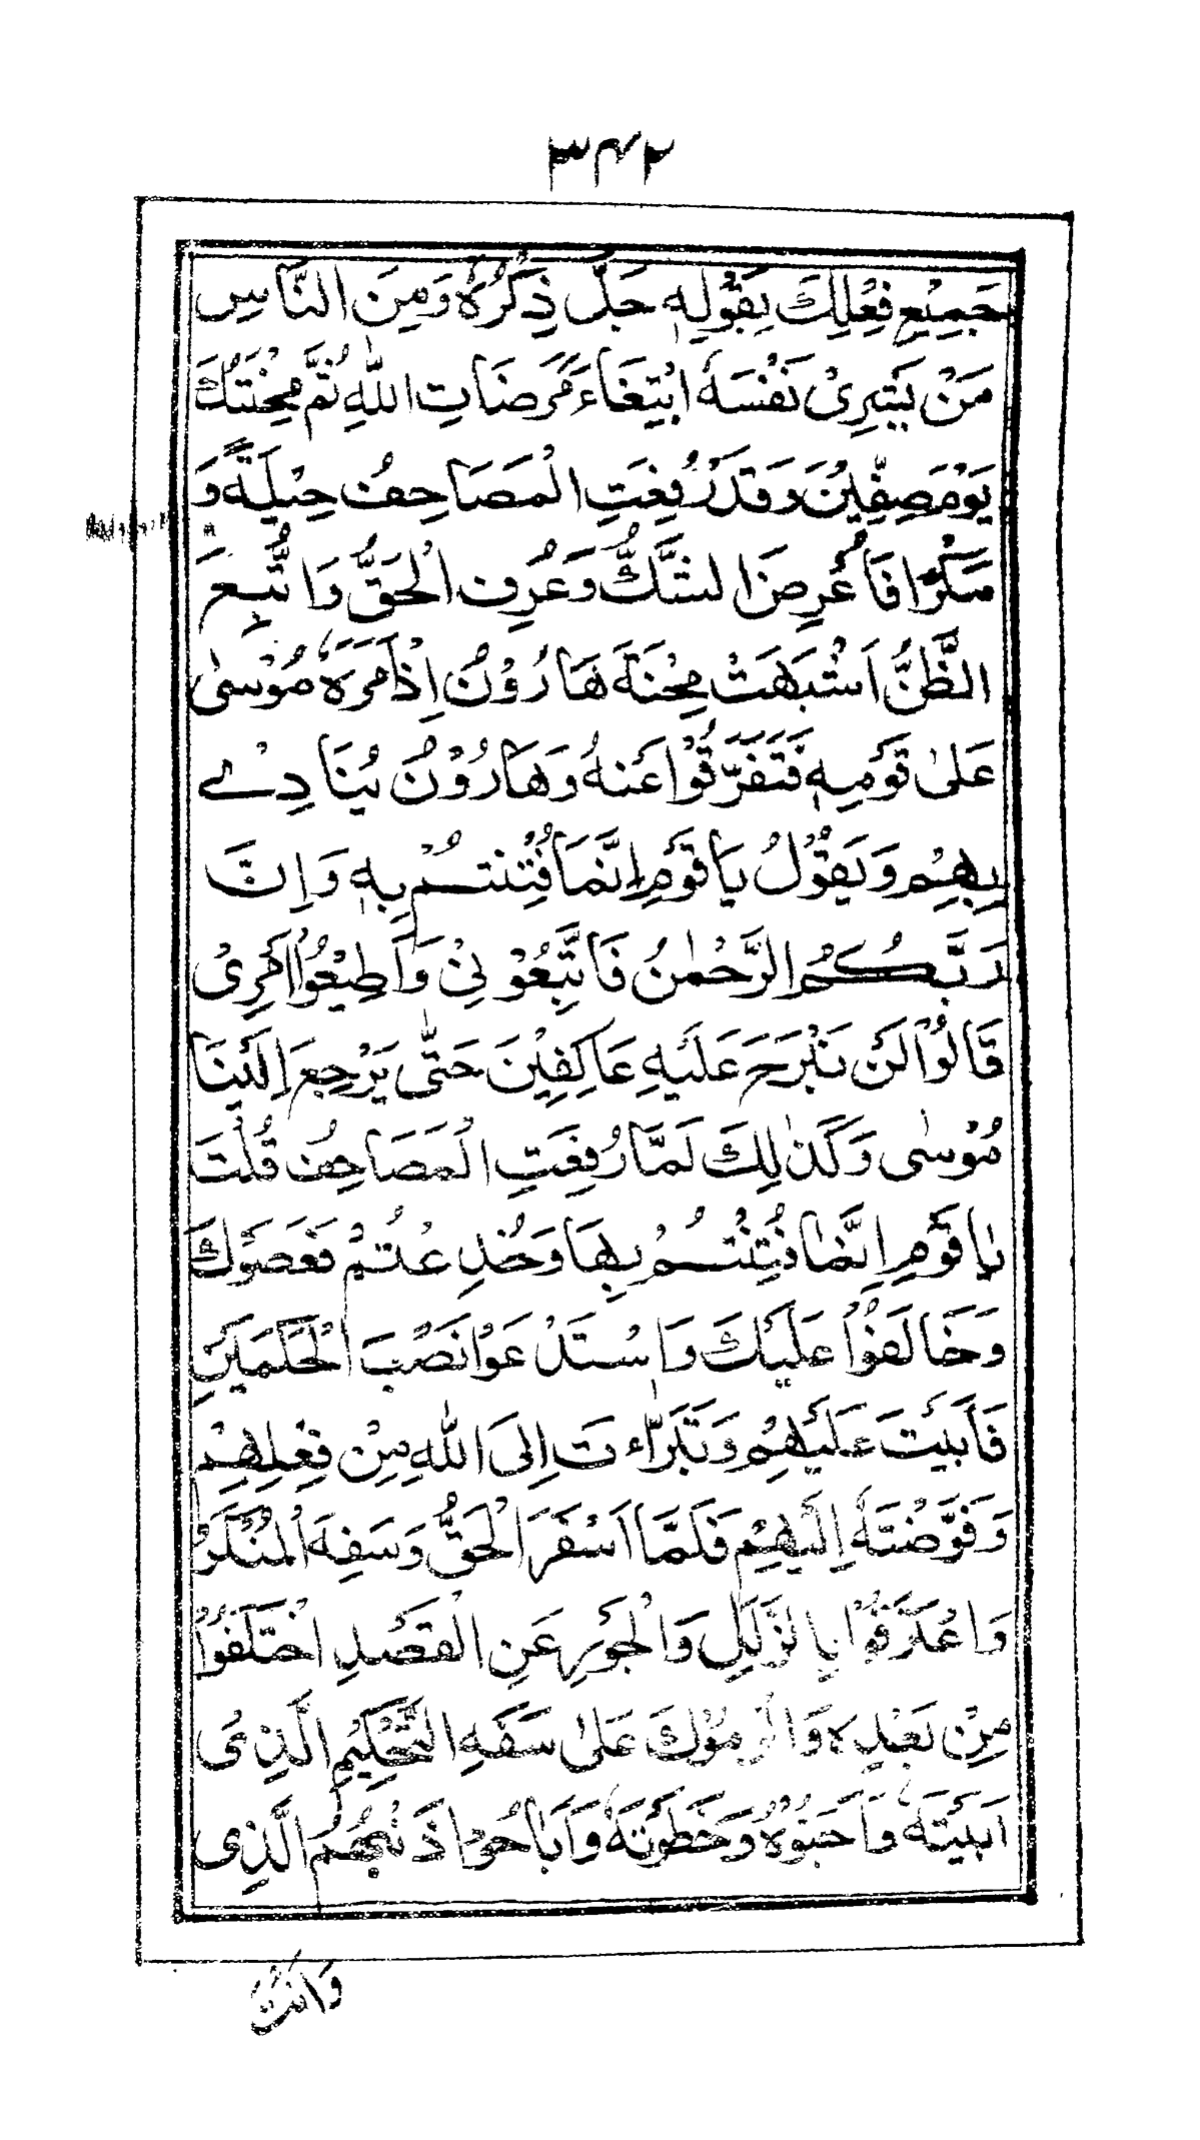 ٣٤٢
جَمِيْعِ فِعْلِكَ بِقَوْلِهٖ جَلَّ ذِكْرُهٗ وَمِنَ النَّاسِ
مَنْ يَشْرِيْ نَفْسَهُ ابْتِغَاءَ مَرْضَاتِ اللّٰهِ ثُمَّ مِحْنَتُكَ
يَوْمَ صِفِّيْنَ وَقَدْ رُفِعَتِ الْمَصَاحِفُ حِيْلَةً وَ
مَكْرًا فَأُعْرِضَ الشَّكُّ وَعُرِفَ الْحَقُّ وَاتُّبِعَ
الظَّنُّ اَشْبَهَتْ مِحْنَةَ هَارُوْنَ اِذْ اَمَرَهٗ مُوْسٰى
عَلٰى قَوْمِهٖ فَتَفَرَّقُوْا عَنْهُ وَهَارُوْنُ يُنَادِيْ
بِهِمْ وَيَقُوْلُ يَا قَوْمِ اِنَّمَا فُتِنْتُمْ بِهٖ وَاِنَّ
رَبَّكُمُ الرَّحْمٰنُ فَاتَّبِعُوْنِيْ وَاَطِيْعُوْا اَمْرِيْ
قَالُوْا لَنْ نَبْرَحَ عَلَيْهِ عَاكِفِيْنَ حَتّٰى يَرْجِعَ اِلَيْنَا
مُوْسٰى وَكَذٰلِكَ لَمَّا رُفِعَتِ الْمَصَاحِفُ قُلْتَ
يَا قَوْمِ اِنَّمَا فُتِنْتُمْ بِهَا وَخُدِعْتُمْ فَعَصَوْكَ
وَخَالَفُوْا عَلَيْكَ وَاسْتَدْعَوْا نَصْبَ الْحَكَمَيْنِ
فَأَبَيْتَ عَلَيْهِمْ وَتَبَرَّاْتَ اِلَى اللّٰهِ مِنْ فِعْلِهِمْ
وَفَوَّضْتَهٗ اِلَيْهِمْ فَلَمَّا اَسْفَرَ الْحَقُّ وَسَفِهَ الْمُنْكَرُ
وَاعْتَرَفُوْا بِالزَّلَلِ وَالْجَوْرِ عَنِ الْقَصْدِ اخْتَلَفُوْا
مِنْ بَعْدِهٖ وَاَلْزَمُوْكَ عَلٰى سَفَهِ التَّحْكِيْمِ الَّذِيْ
اَبَيْتَهٗ وَاَحَبُّوْهُ وَحَظَرْتَهٗ وَاَبَاحُوْا ذَنْبَهُمُ الَّذِى
وَاَنْتَ